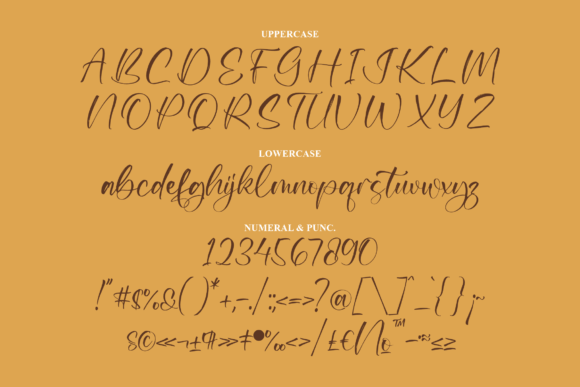 UPPERCASE
ABCDEFGHIJKLM
NOPQRSTUVWXYZ
LOWERCASE
abcdefghijklmnopqrstuvwxyz
NUMERAL & PUNC.
1234567890
!"#$%&()*+,-./:;<=>?@[\]^_`{}¡~
§©«¬±¶»≠●‰<>/£€№™–•"‘≤≥